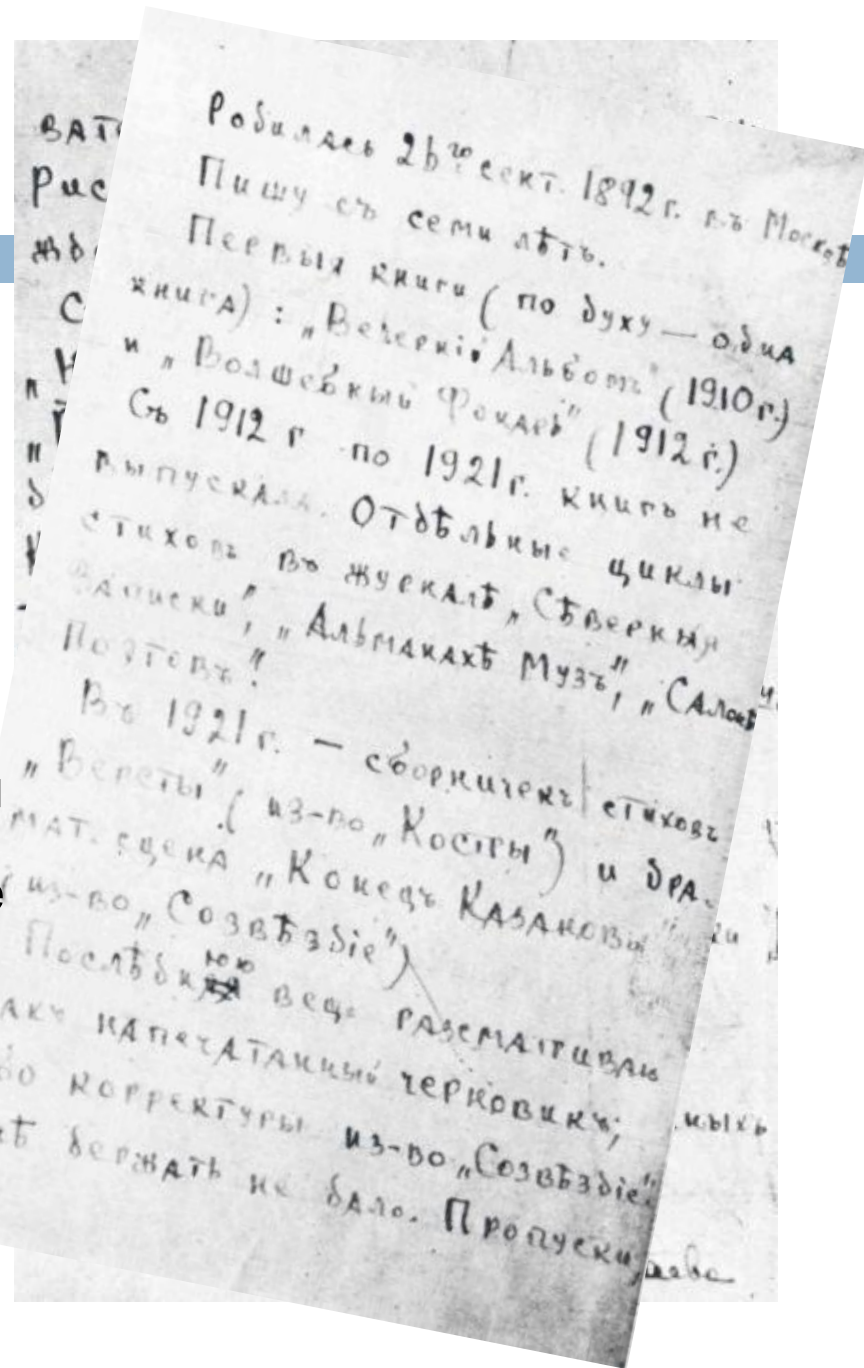 Родилась 26го сент. 1892 г. въ Москвѣ
Пишу съ семи лѣтъ.
Первыя книги ( по духу — одна
книга) : „Вечернiй Альбомъ" (1910 г.)
и „ Волшебный Фонарь" (1912 г.)
Съ 1912 г по 1921 г. книгъ не
выпускала. Отдѣльные циклы
стиховъ въ журналѣ „Сѣверныя
Записки", „Альманахѣ Музъ", „Салонѣ
Поэтовъ".
Въ 1921 г. — сборничекъ стиховъ
„Версты" ( из-во „Костры") и дра-
мат. сцена „Конецъ Казановы"
( из-во „Созвѣздiе")
Послѣднюю вещь разсматриваю
какъ напечатанный черновикъ,
корректуры из-во „Созвѣздiе".
держать не дало. Пропуски,
ват
Рис
ныхъ